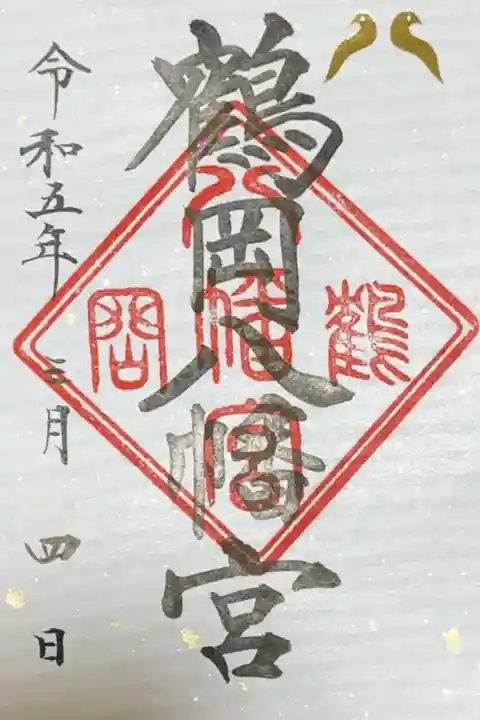 鶴岡八幡宮
鶴
八幡宮
岡
令和五年三月四日